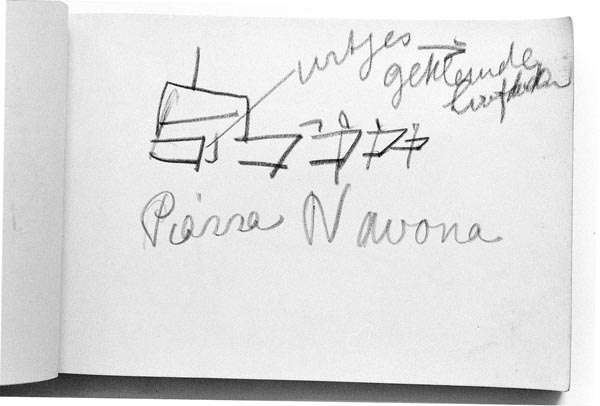 urtjes
gekleurde
Piazza Navona